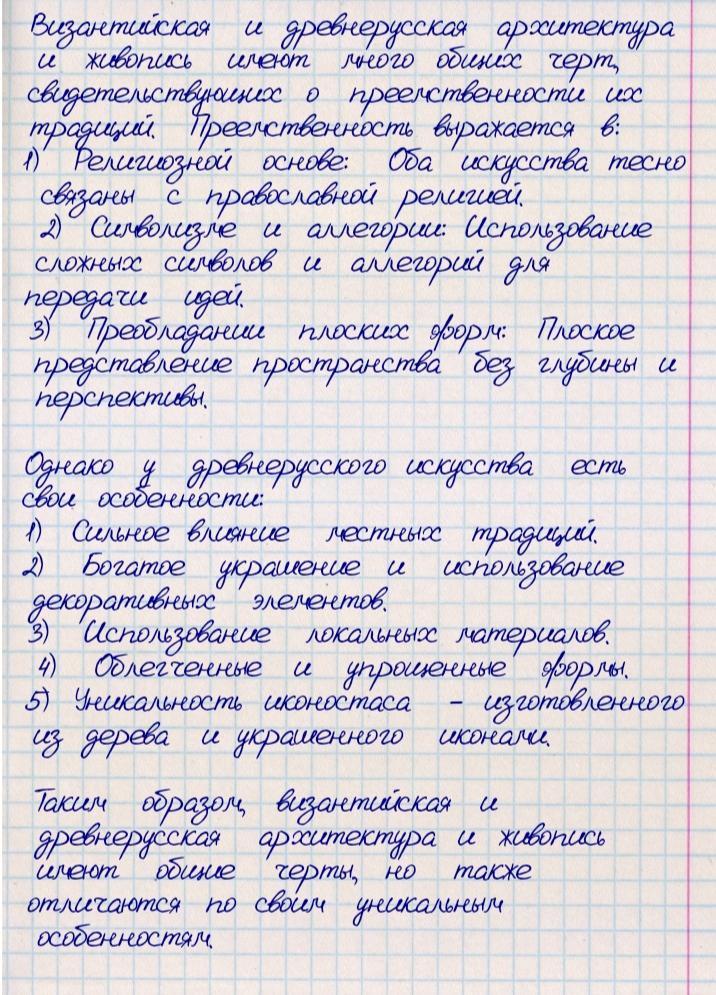 Византийская и древнерусская архитектура
и живопись имеют много общих черт,
свидетельствующих о преемственности их
традиций. Преемственность выражается в:
1) Религиозной основе: Оба искусства тесно
связаны с православной религией.
2) Символизме и аллегории: Использование
сложных символов и аллегорий для
передачи идей.
3) Преобладании плоских форм: Плоское
представление пространства без глубины и
перспективы.
Однако у древнерусского искусства есть
свои особенности:
1) Сильное влияние местных традиций.
2) Богатое украшение и использование
декоративных элементов.
3) Использование локальных материалов.
4) Облегченные и упрощенные формы.
5) Уникальность иконостаса - изготовленного
из дерева и украшенного иконами.
Таким образом, византийская и
древнерусская архитектура и живопись
имеют общие черты, но также
отличаются по своим уникальным
особенностям.